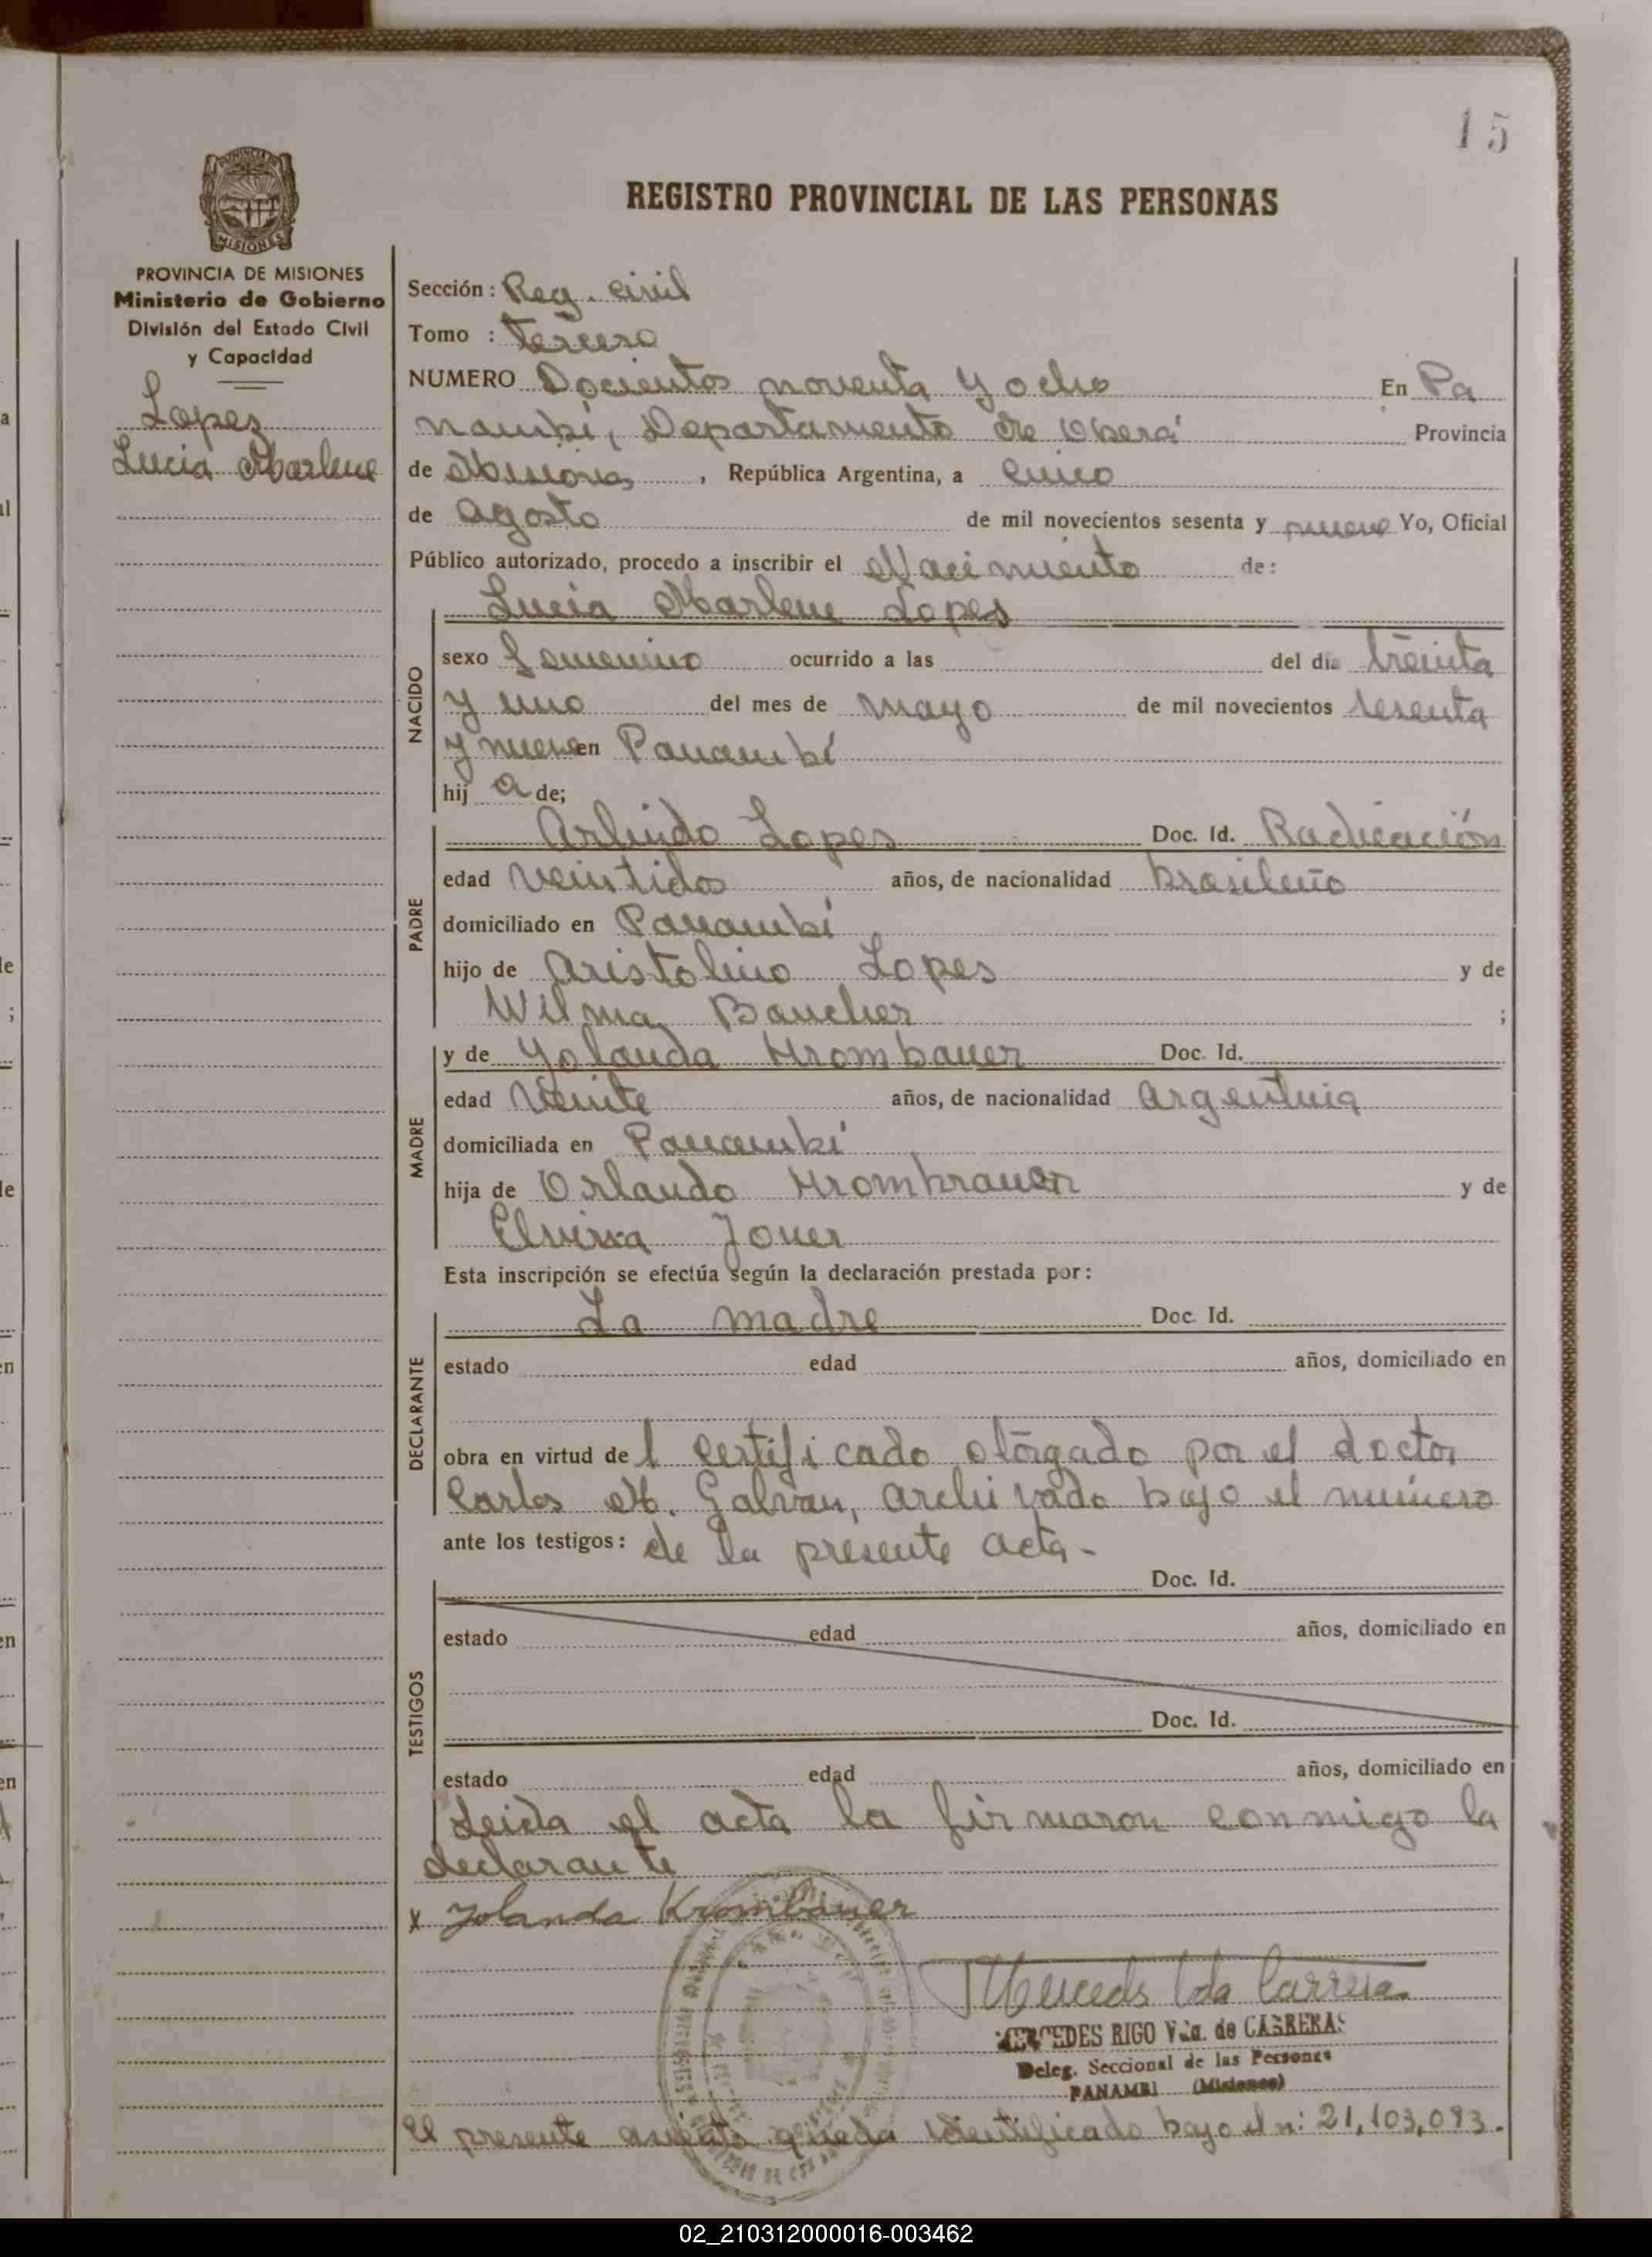 15
PROVINCIA DE
MISIONES
REGISTRO PROVINCIAL DE LAS PERSONAS
PROVINCIA DE MISIONES
Ministerio de Gobierno
División del Estado Civil
y Capacidad
Lopez
Lucia Marlene
Sección: Reg. civil
Tomo : tercero
NUMERO Docientos noventa y ocho En Pa
nambí, Departamento de Oberá Provincia
de Misiones, República Argentina, a cinco
de agosto de mil novecientos sesenta y nueve Yo, Oficial
Público autorizado, procedo a inscribir el Nacimiento de:
Lucia Marlene Lopes
NACIDO
sexo femenino ocurrido a las del día treinta
y uno del mes de mayo de mil novecientos sesenta
y nueve en Panambí
hij a de;
PADRE
Arlindo Lopes Doc. Id. Radicación
edad veintidos años, de nacionalidad brasileño
domiciliado en Panambí
hijo de Aristolino Lopes y de
Wilma Baucher ;
MADRE
y de Yolanda Krombauer Doc. Id.
edad veinte años, de nacionalidad Argentina
domiciliada en Panambí
hija de Orlando Krombrauer y de
Elvira Joner
Esta inscripción se efectúa según la declaración prestada por:
DECLARANTE
La madre Doc. Id.
estado edad años, domiciliado en
obra en virtud de l certificado otorgado por el doctor
Carlos M. Galvan, archivado bajo el número
ante los testigos: de la presente acta-
TESTIGOS
Doc. Id.
estado edad años, domiciliado en
Doc. Id.
estado edad años, domiciliado en
Leida el acta la firmaron conmigo la
declarante
x Yolanda Krombauer
MERCEDES RIGO Vda. de CABRERAS
Deleg. Seccional de las Personas
PANAMBI (Misiones)
El presente asiento queda identificado bajo el n: 21,103,093.
02_210312000016-003462